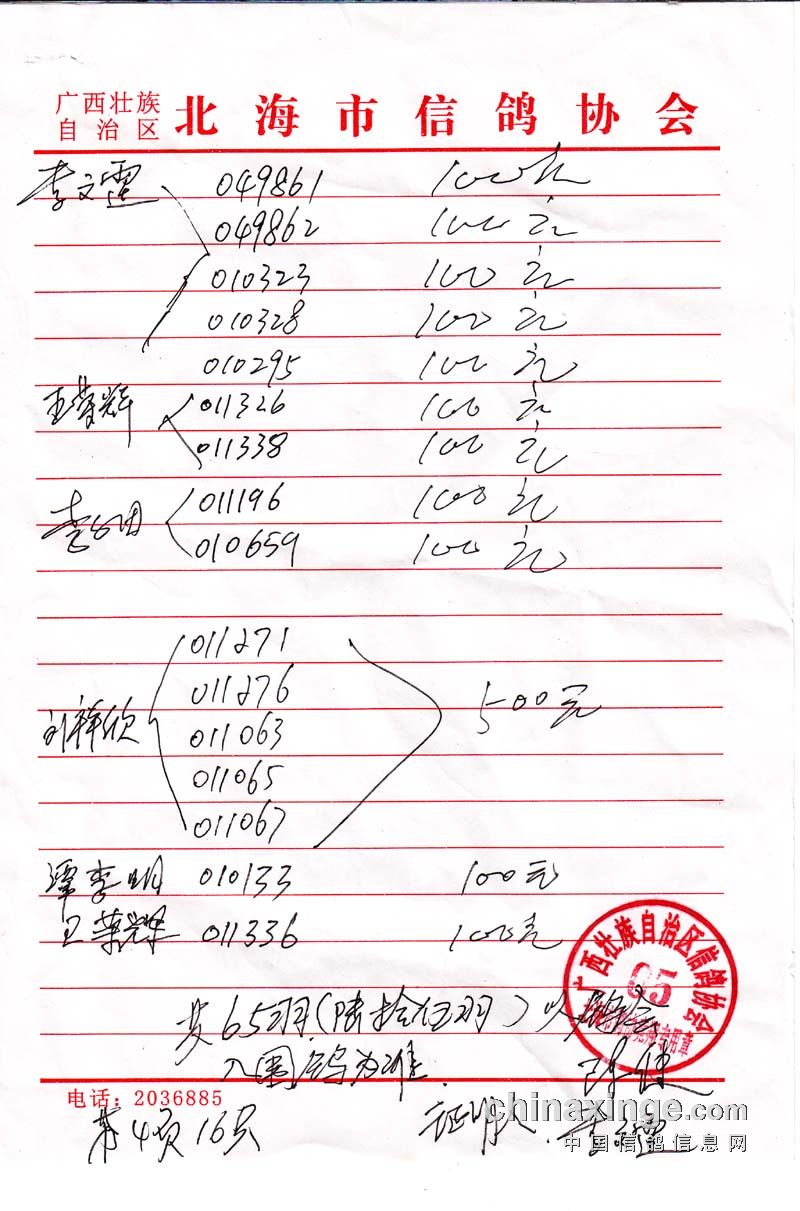 广西壮族
自治区 北海市信鸽协会
李文霆 049861 100元
049862 100元
010323 100元
010328 100元
010295 100元
王荣辉 011326 100元
011338 100元
011196 100元
010659 100元
011271
011276
刘祥欣 011063 500元
011065
011067
谭李明 010133 100元
王荣辉 011336 100元
广西壮族自治区信鸽协会
05
共65羽(陆拾伍羽)以
入围鸽为准.
电话:2036885
第4页16只 证明人
chinaxinge.com
中国信鸽信息网